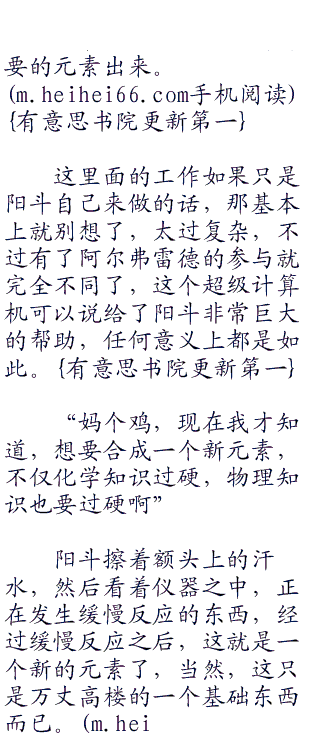 要的元素出来。
(m.heihei66.com手机阅读)
{有意思书院更新第一}
这里面的工作如果只是
阳斗自己来做的话，那基本
上就别想了，太过复杂，不
过有了阿尔弗雷德的参与就
完全不同了，这个超级计算
机可以说给了阳斗非常巨大
的帮助，任何意义上都是如
此。{有意思书院更新第一}
“妈个鸡，现在我才知
道，想要合成一个新元素，
不仅化学知识过硬，物理知
识也要过硬啊”
阳斗擦着额头上的汗
水，然后看着仪器之中，正
在发生缓慢反应的东西，经
过缓慢反应之后，这就是一
个新的元素了，当然，这只
是万丈高楼的一个基础东西
而已。(m.hei